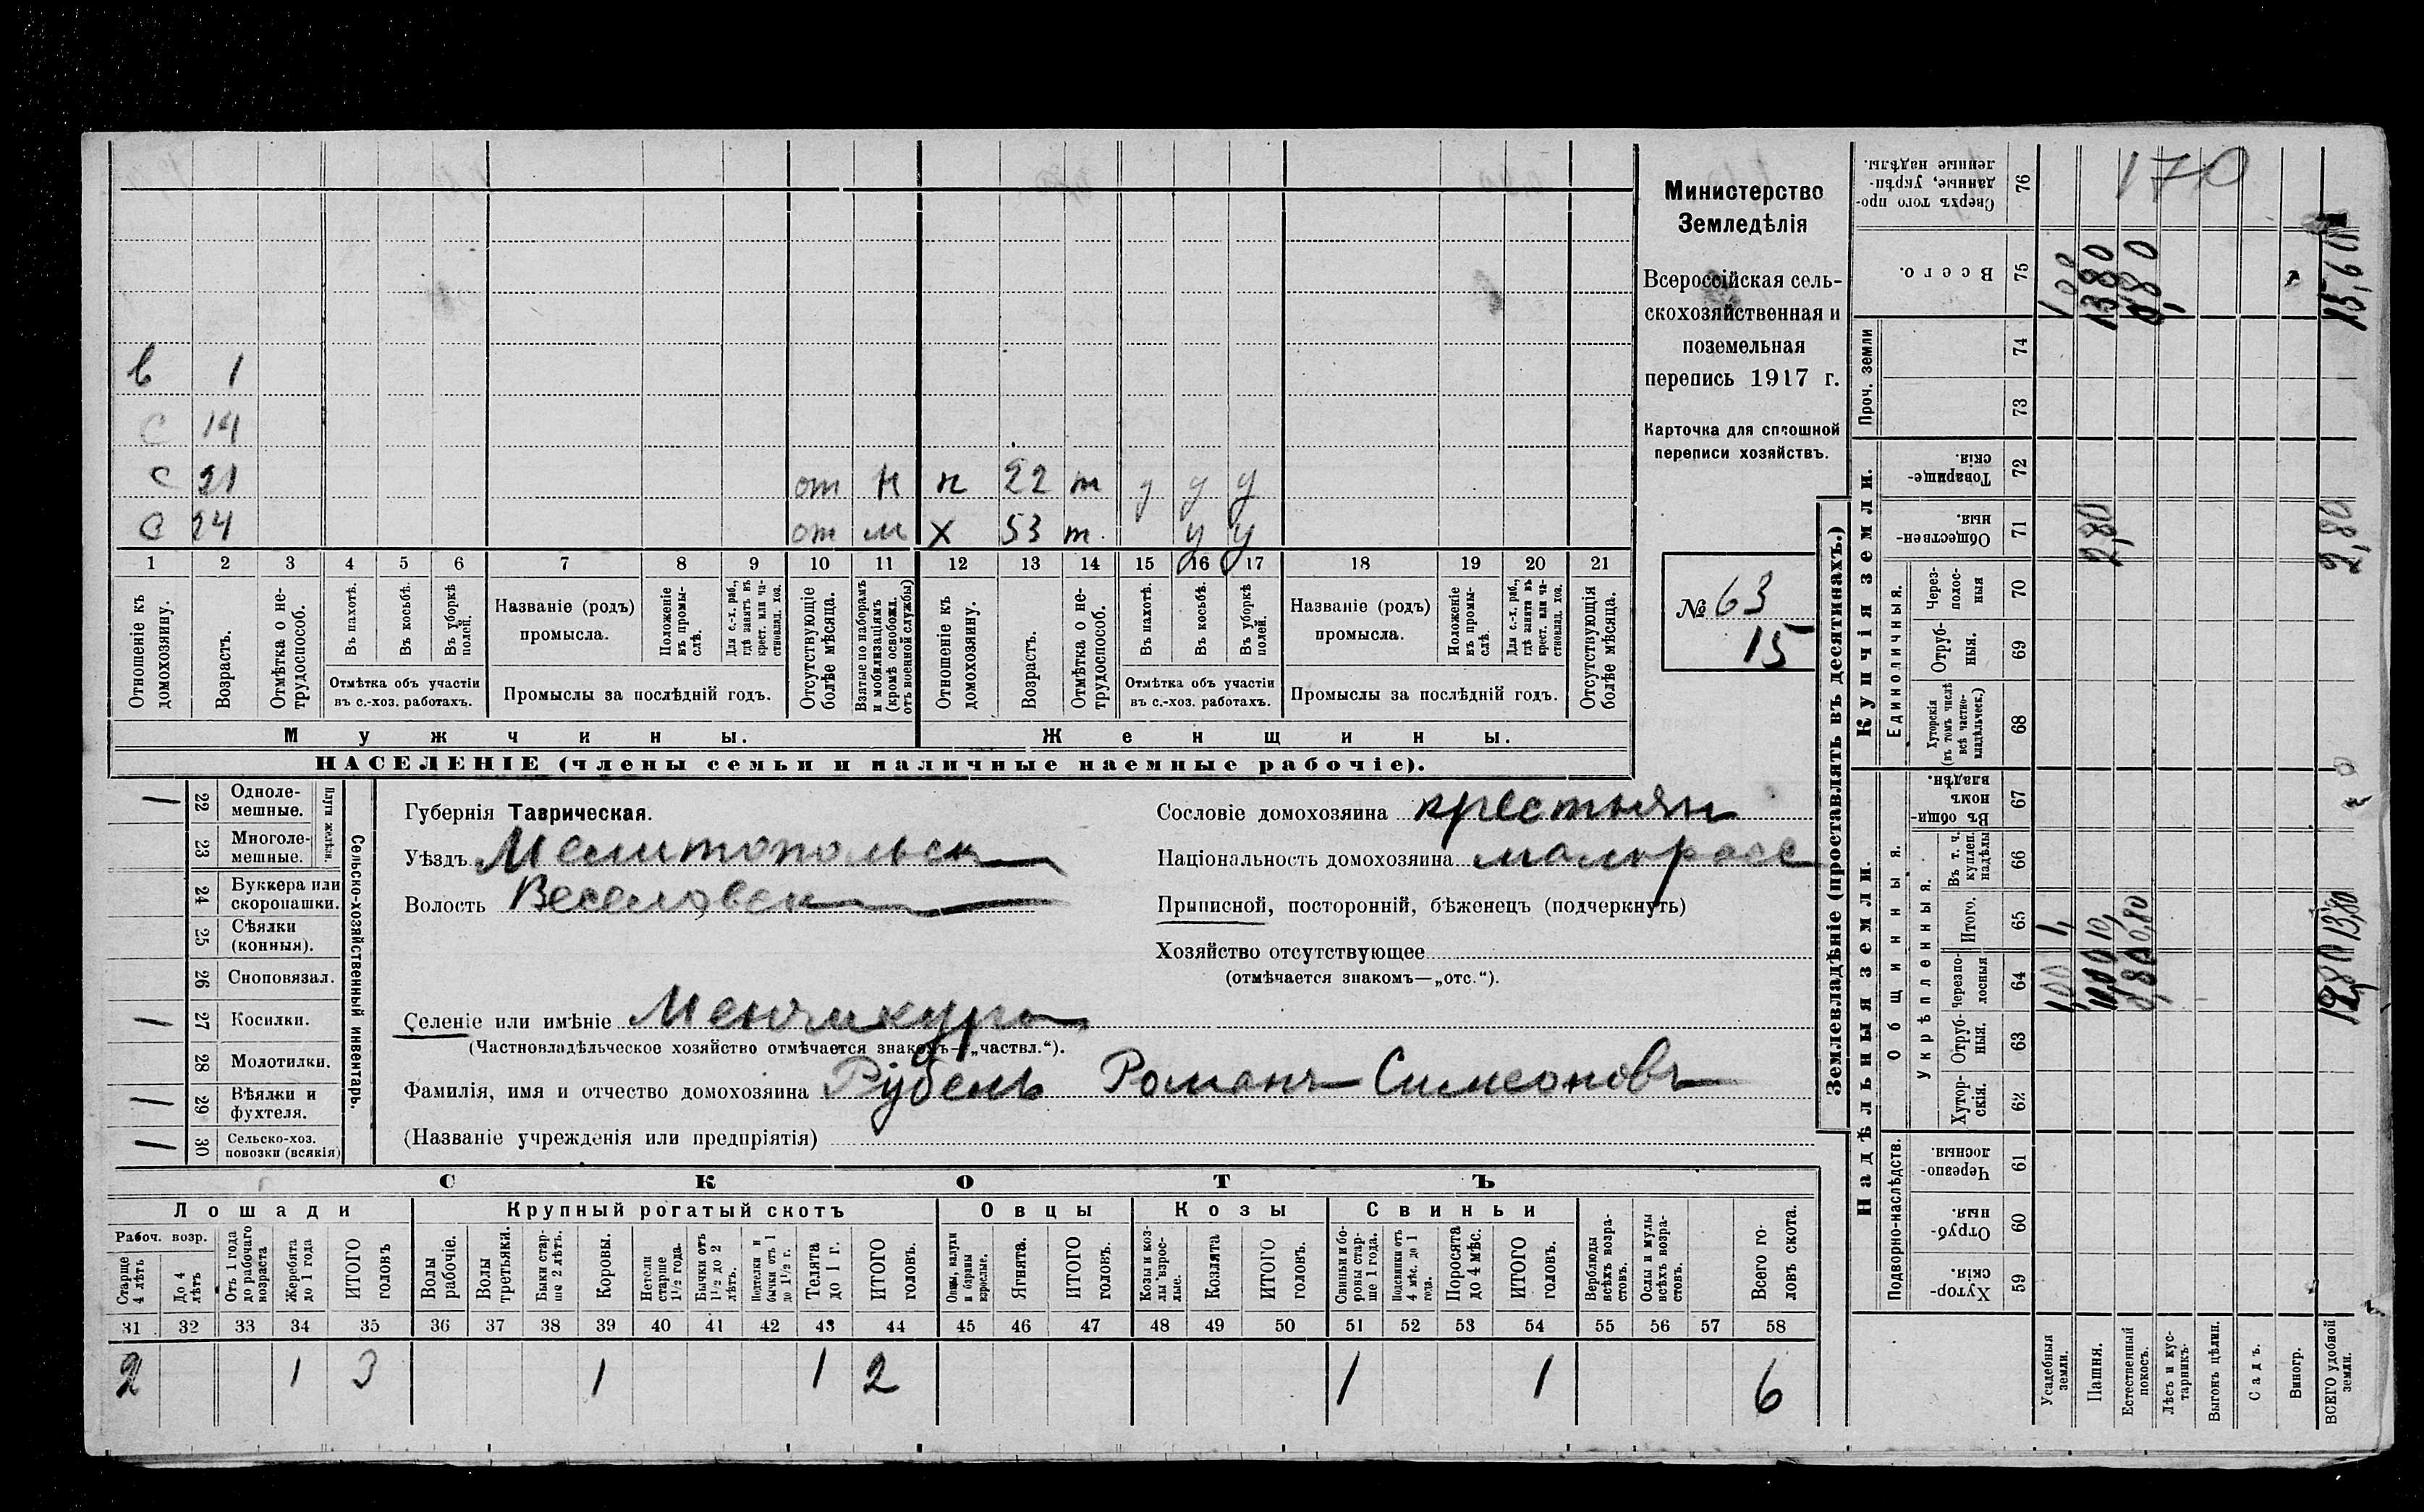 в 1
с 14
с 21 от н н 22 т у у у
с 24 от м х 53 т. у у
1 2 3 4 5 6 7 8 9 10 11 12 13 14 15 16 17 18 19 20 21
Отношеніе къ домохозяину.
Возрастъ.
Отмѣтка о нетрудоспособ.
Въ пахотѣ.
Въ косьбѣ.
Въ уборкѣ полей.
Отмѣтка объ участіи
въ с.-хоз. работахъ.
Названіе (родъ)
промысла.
Положеніе въ промыслѣ.
Для с.-х. раб., гдѣ занятъ въ крест. или частновлад. хоз.
Промыслы за послѣдній годъ.
Отсутствующіе болѣе мѣсяца.
Взятые по наборамъ и мобилизаціямъ (кромѣ освобожд. отъ военной службы)
Отношеніе къ домохозяину.
Возрастъ.
Отмѣтка о нетрудоспособ.
Въ пахотѣ.
Въ косьбѣ.
Въ уборкѣ полей.
Отмѣтка объ участіи
въ с.-хоз. работахъ.
Названіе (родъ)
промысла.
Положеніе въ промыслѣ.
Для с.-х. раб., гдѣ занята въ крест. или частновлад. хоз.
Промыслы за послѣдній годъ.
Отсутствующія болѣе мѣсяца.
Мужчины. Женщины.
НАСЕЛЕНІЕ (члены семьи и наличные наемные рабочіе).
Министерство
Земледѣлія
Всероссійская сель-
скохозяйственная и
поземельная
перепись 1917 г.
Карточка для сплошной
переписи хозяйствъ.
№ 63
15
Сельско-хозяйственный инвентарь.
Плуги желѣзн.
1 22 Одноле-
мешные.
23 Многоле-
мешные.
24 Буккера или
скоропашки.
25 Сѣялки
(конныя).
26 Сноповязал.
1 27 Косилки.
28 Молотилки.
1 29 Вѣялки и
фухтеля.
1 30 Сельско-хоз.
повозки (всякія)
Губернія Таврическая.
Уѣздъ Мелитопольск
Волость Веселовск
Селеніе или имѣніе Менчикуры
(Частновладѣльческое хозяйство отмѣчается знакомъ—„частвл.“).
Фамилія, имя и отчество домохозяина Рубенъ Романъ Симеоновъ
(Названіе учрежденія или предпріятія)
Сословіе домохозяина крестьян
Національность домохозяина малоросс
Приписной, посторонній, бѣженецъ (подчеркнуть)
Хозяйство отсутствующее
(отмѣчается знакомъ—„отс.“).
СКОТЪ
Лошади Крупный рогатый скотъ Овцы Козы Свиньи
Рабоч. возр.
Старше 4 лѣтъ
До 4 лѣтъ
Отъ 1 года до рабочаго возраста
Жеребята до 1 года
ИТОГО головъ
Волы рабочіе.
Волы третьяки.
Быки старше 2 лѣтъ.
Коровы.
Нетели старше 1½ года.
Бычки отъ 1½ до 2 лѣтъ.
Подтелки и бычки отъ 1 до 1½ г.
Телята до 1 г.
ИТОГО головъ.
Овцы, валухи и бараны взрослые.
Ягнята.
ИТОГО головъ.
Козы и козлы взрослые.
Козлята
ИТОГО головъ.
Свиньи и боровы старше 1 года.
Подсвинки отъ 4 мѣс. до 1 года.
Поросята до 4 мѣс.
ИТОГО головъ.
Верблюды всѣхъ возрастовъ.
Ослы и мулы всѣхъ возрастовъ.
Всего головъ скота.
31 32 33 34 35 36 37 38 39 40 41 42 43 44 45 46 47 48 49 50 51 52 53 54 55 56 57 58
2 1 3 1 1 2 1 1 6
Землевладѣніе (проставлять въ десятинахъ.)
Надѣльныя земли.
Купчія земли.
Проч. земли
Подворно-наслѣдств.
Общинныя.
Укрѣпленныя.
Единоличныя.
Хуторскія. 59
Отрубныя. 60
Черезполосныя. 61
Хуторскія. 62
Отрубныя. 63
Черезполосныя 64
Итого. 65
Въ т. ч. куплен. надѣлы 66
Въ общинномъ владѣн. 67
Хуторскія (въ томъ числѣ всѣ частновладѣльческ.) 68
Отрубныя. 69
Черезполосныя 70
Общественныя. 71
Товарищескія. 72
73
74
Всего. 75
Сверхъ того проданные, укрѣпленные надѣлы. 76
170
Усадебныя земли. 1,00 1,
Пашня. 2,80 13 80
Естественный покосъ. 0,80 0,80
Лѣсъ и кустарникъ.
Выгонъ цѣлин.
Садъ.
Виногр.
ВСЕГО удобной земли. 2,80 15,60